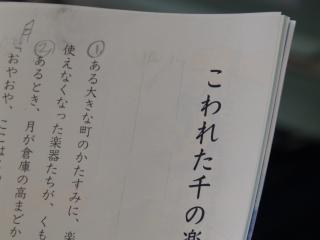 こわれた千の楽
①ある大きな町のかたすみに、楽
使えなくなった楽器たちが、くも
②あるとき、月が倉庫の高まどか
「おやおや、ここは